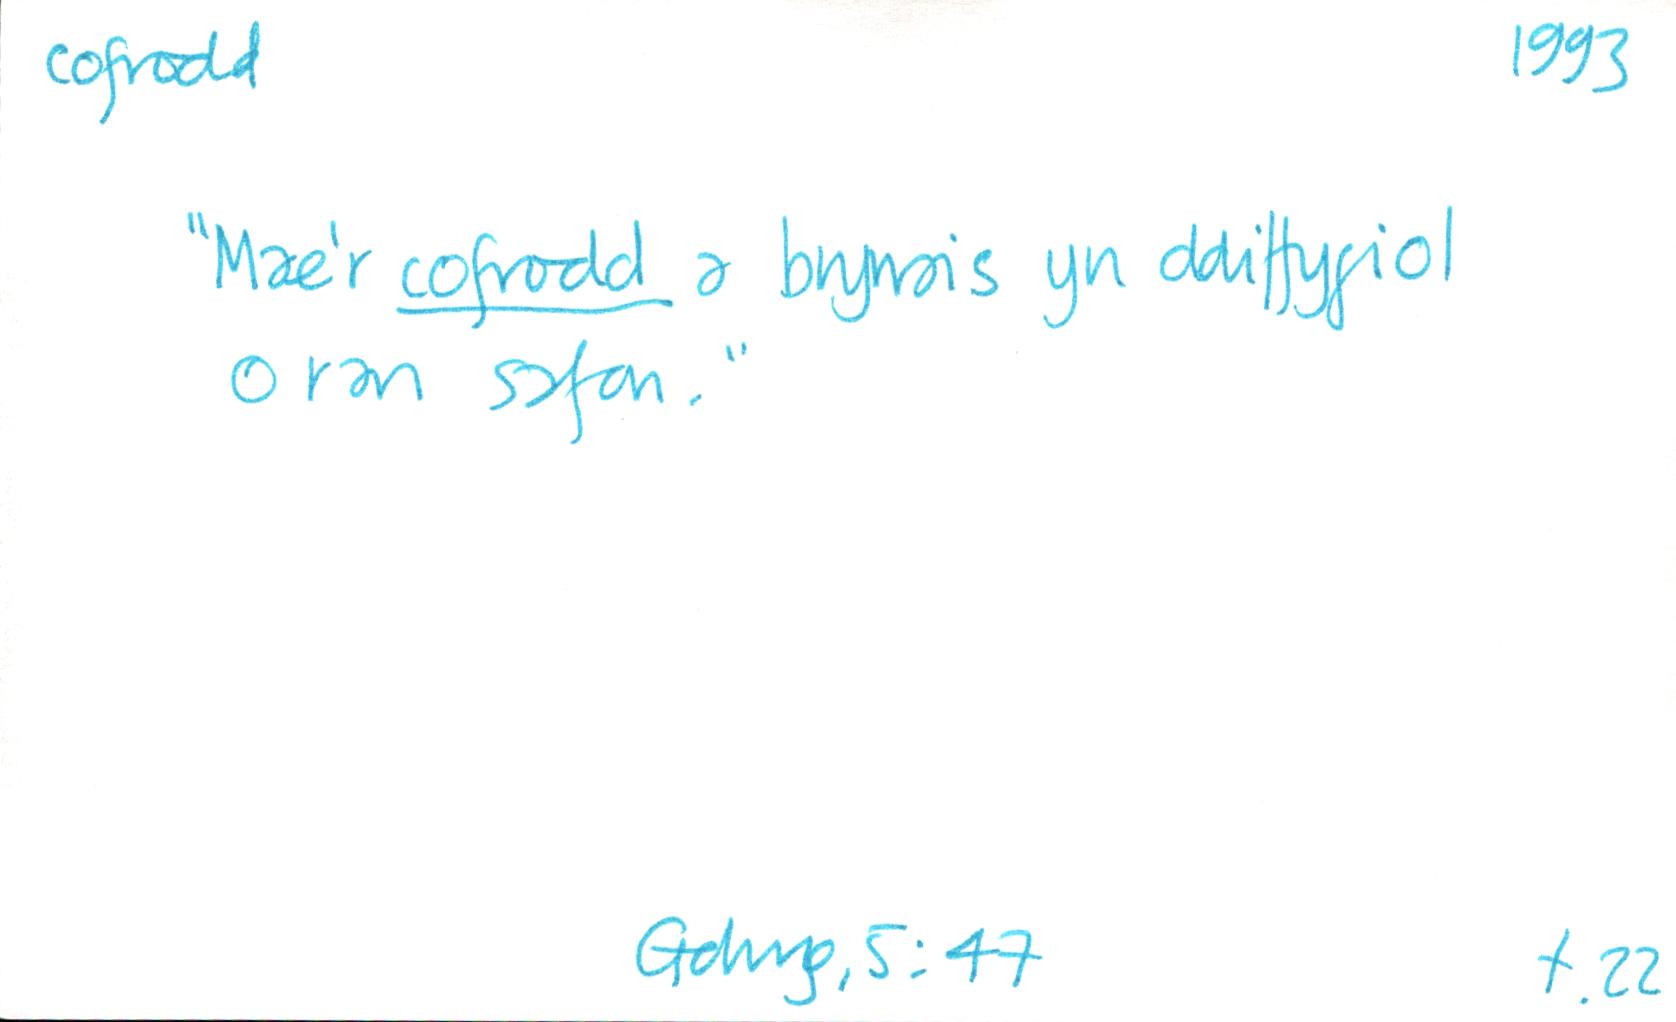 cofrodd 1993
"Mae'r cofrodd a brynais yn ddiffygiol
o ran safon."
Golwg, 5:47 t.22